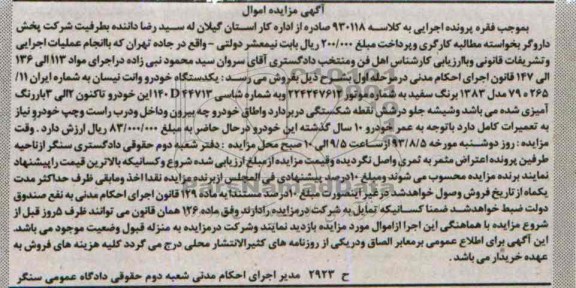 آگهی مزایده اموال
بموجب فقره پرونده اجرایی به کلاسه ۹۳۰۱۱۸ صادره از اداره کار استان گیلان له سید رضا داننده بطرفیت شرکت پخش
داروگر بخواسته مطالبه کارگری وپرداخت مبلغ ۲۰۰/۰۰۰ ریال بابت نیمعشر دولتی - واقع در جاده تهران که باانجام عملیات اجرایی
و تشریفات قانونی وباارزیابی کارشناس اهل فن ومنتخب دادگستری آقای سروان سید محمود نبی زاده دراجرای مواد ۱۱۳الی ۱۳۶
الی ۱۴۷ قانون اجرای احکام مدنی درمرحله اول بشرح ذیل بفروش می رسد : یکدستگاه خودرو وانت نیسان به شماره ایران ۱۱/
۲۶۵ ه ۷۹ مدل ۱۳۸۳ برنگ سفید به شماره موتور ۲۲۴۳۴۷۶۱۲ وبه شماره شاسی ۱۴۰D۴۴۷۱۳ این خودرو تاکنون ۲الی ۳باررنگ
آمیزی شده می باشد وشیشه جلو درشش نقطه شکستگی دربردارد واطاق خودرو چه بیرون وداخل ودرب راست وچپ خودرو نیاز
به تعمیرات کامل دارد باتوجه به عمر خودرو ۱۰ سال گذشته این خودرو درحال حاضر به مبلغ ۸۳/۰۰۰/۰۰۰ ریال ارزش دارد . وقت
مزایده : روز دوشنبه مورخه ۹۳/۸/۵ ازساعت ۹/۵ الی ۱۰ صبح محل مزایده : دفتر شعبه دوم حقوقی دادگستری سنگر ازناحیه
طرفین پرونده اعتراض مثمر به ثمری واصل نگردیده وقیمت مزایده ازمبلغ ارزیابی شده شروع وکسانیکه بالاترین قیمت راپیشنهاد
نمایند برنده مزایده محسوب می شوند ومبلغ ۱۰درصد پیشنهادی فی المجلس ازبرنده مزایده نقدا اخذ ومابقی ظرف حداکثر مدت
یکماه از تاریخ فروش وصول خواهدشد درغیر اینصورت مبلغ ۱۰درصد مستندا به ماده ۱۲۹ قانون اجرای احکام مدنی به نفع صندوق
دولت ضبط خواهدشد ضمنا کسانیکه تمایل به شرکت درمزایده رادارند وفق ماده ۱۲۶ همان قانون می توانند ظرف ۵روز قبل از
شروع مزایده با هماهنگی این اجرا ازاموال مورد مزایده بازدید نمایند وشرکت درمزایده به منزله قبول وضعیت موجود می باشد.
این آگهی برای اطلاع عمومی برمعابر الصاق ودریکی از روزنامه های کثیرالانتشار محلی درج می گردد کلیه هزینه های فروش به
عهده خریدار می باشد .
ح ۲۹۲۳ مدیر اجرای احکام مدنی شعبه دوم حقوقی دادگاه عمومی سنگر